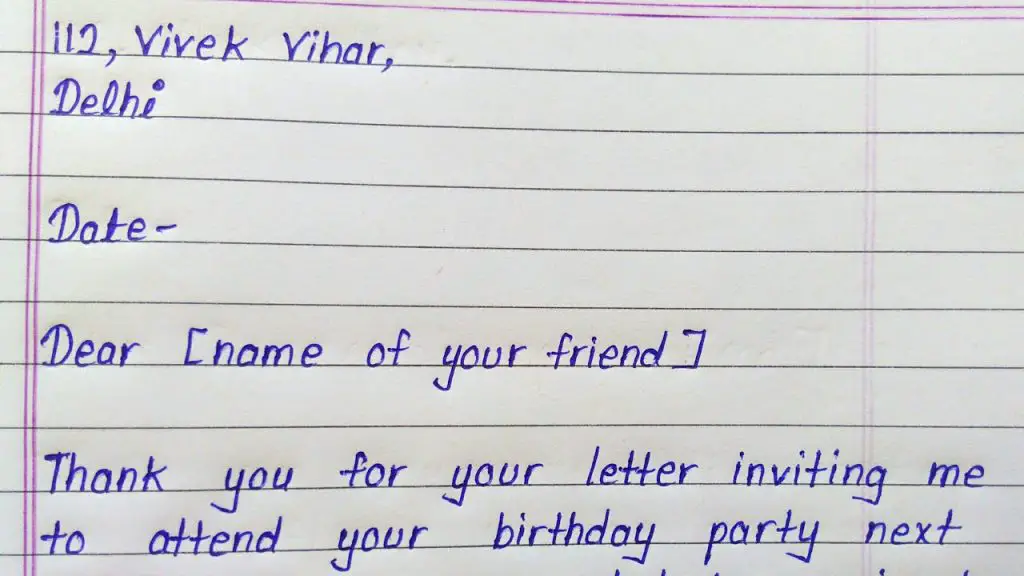 112, Vivek Vihar,
Delhi
Date-
Dear [name of your friend]
Thank you for your letter inviting me
to attend your birthday party next